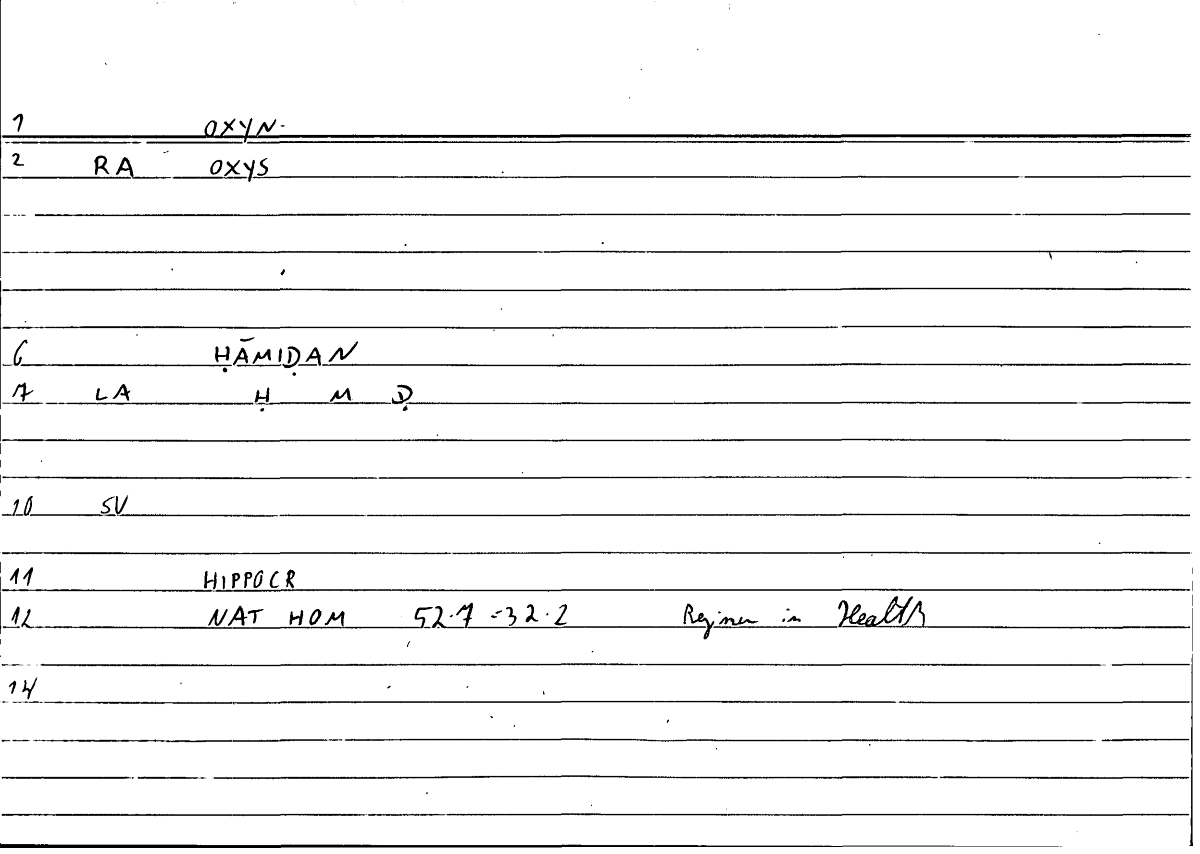 1 OXYN.
2 RA OXYS
6 ḤĀMIḌAN
7 LA Ḥ M Ḍ
10 SV
11 HIPPOCR
12 NAT HOM 52.7 = 32.2 Regimen in Health
14